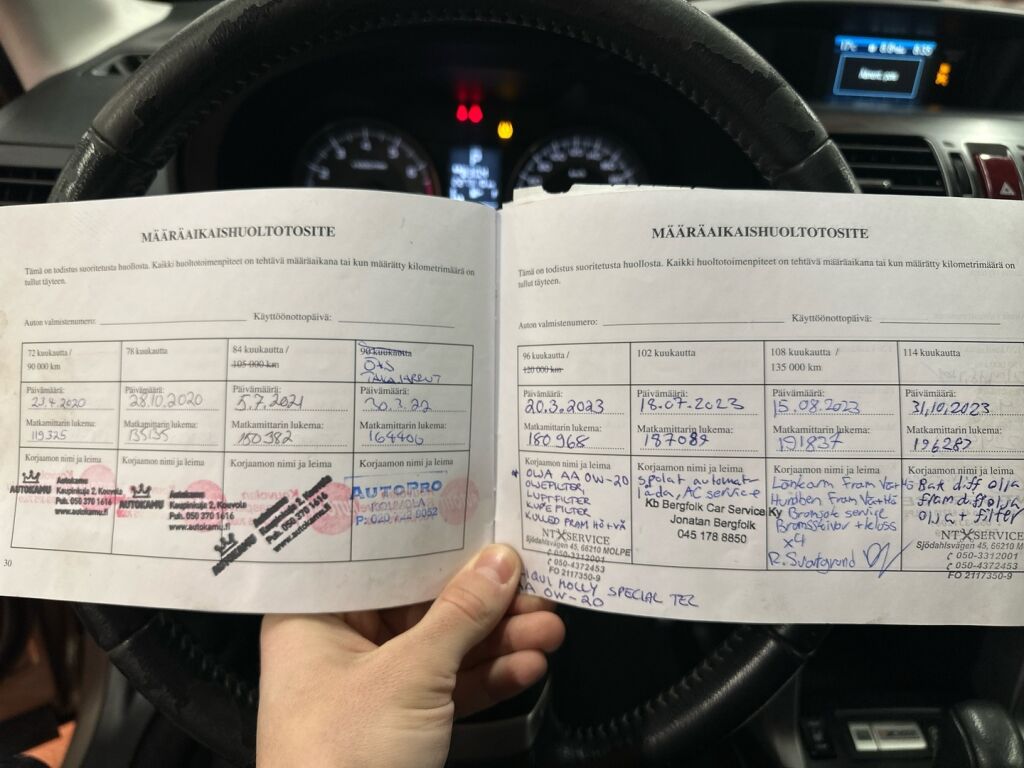 P
MÄÄRÄAIKAISHUOLTOTOSITE
Tämä on todistus suoritetusta huollosta. Kaikki huoltotoimenpiteet on tehtävä määräaikana tai kun määrätty kilometrimäärä on
tullut täyteen.
Auton valmistenumero: Käyttöönottopäivä:
72 kuukautta /
90 000 km
78 kuukautta
84 kuukautta /
105 000 km
90 kuukautta
Päivämäärä:
23.4.2020
Päivämäärä:
28.10.2020
Päivämäärä:
5.7.2021
Päivämäärä:
30.3.22
Matkamittarin lukema:
119325
Matkamittarin lukema:
135135
Matkamittarin lukema:
150382
Matkamittarin lukema:
164406
Korjaamon nimi ja leima
AUTOKAMU
Autokamu
Kaupinkuja 2, Kouvola
Puh. 050 370 1616
www.autokamu.fi
Korjaamon nimi ja leima
AUTOKAMU
Autokamu
Kaupinkuja 2, Kouvola
Puh. 050 370 1616
www.autokamu.fi
Korjaamon nimi ja leima
AUTOKAMU
Autokamu
Kaupinkuja 2, Kouvola
Puh. 050 370 1616
www.autokamu.fi
Korjaamon nimi ja leima
AUTOPRO
KOUVOLA
30
MÄÄRÄAIKAISHUOLTOTOSITE
Tämä on todistus suoritetusta huollosta. Kaikki huoltotoimenpiteet on tehtävä määräaikana tai kun määrätty kilometrimäärä on
tullut täyteen.
Auton valmistenumero: Käyttöönottopäivä:
96 kuukautta /
120 000 km
102 kuukautta
108 kuukautta /
135 000 km
114 kuukautta
Päivämäärä:
20.3.2023
Päivämäärä:
18.07.2023
Päivämäärä:
15.08.2023
Päivämäärä:
31,10,2023
Matkamittarin lukema:
180968
Matkamittarin lukema:
187089
Matkamittarin lukema:
191837
Matkamittarin lukema:
196287
Korjaamon nimi ja leima
* OLJA AA 0W-20
OLJEFILTER
LUFTFILTER
KUPE FILTER
KULLED FRAM HÖ+VÄ
NTXSERVICE
Sjödahlsvägen 45, 66210 MOLPE
050-3312001
050-4372453
FO 2117350-9
LIQUI MOLLY SPECIAL TEC
AA 0W-20
Korjaamon nimi ja leima
spolat automat
låda, AC service
Kb Bergfolk Car Service Ky
Jonatan Bergfolk
045 178 8850
Korjaamon nimi ja leima
Länkarm Fram Vä+Hö
Hjulben Fram Vä+Hö
Bromsok service
Bromsskivor + kloss
x4
R. Svartgrund
Korjaamon nimi ja leima
Bak diff olja
fram diff olja
olja + filter
NTXSERVICE
Sjödahlsvägen 45, 66210 MOLPE
050-3312001
050-4372453
FO 2117350-9